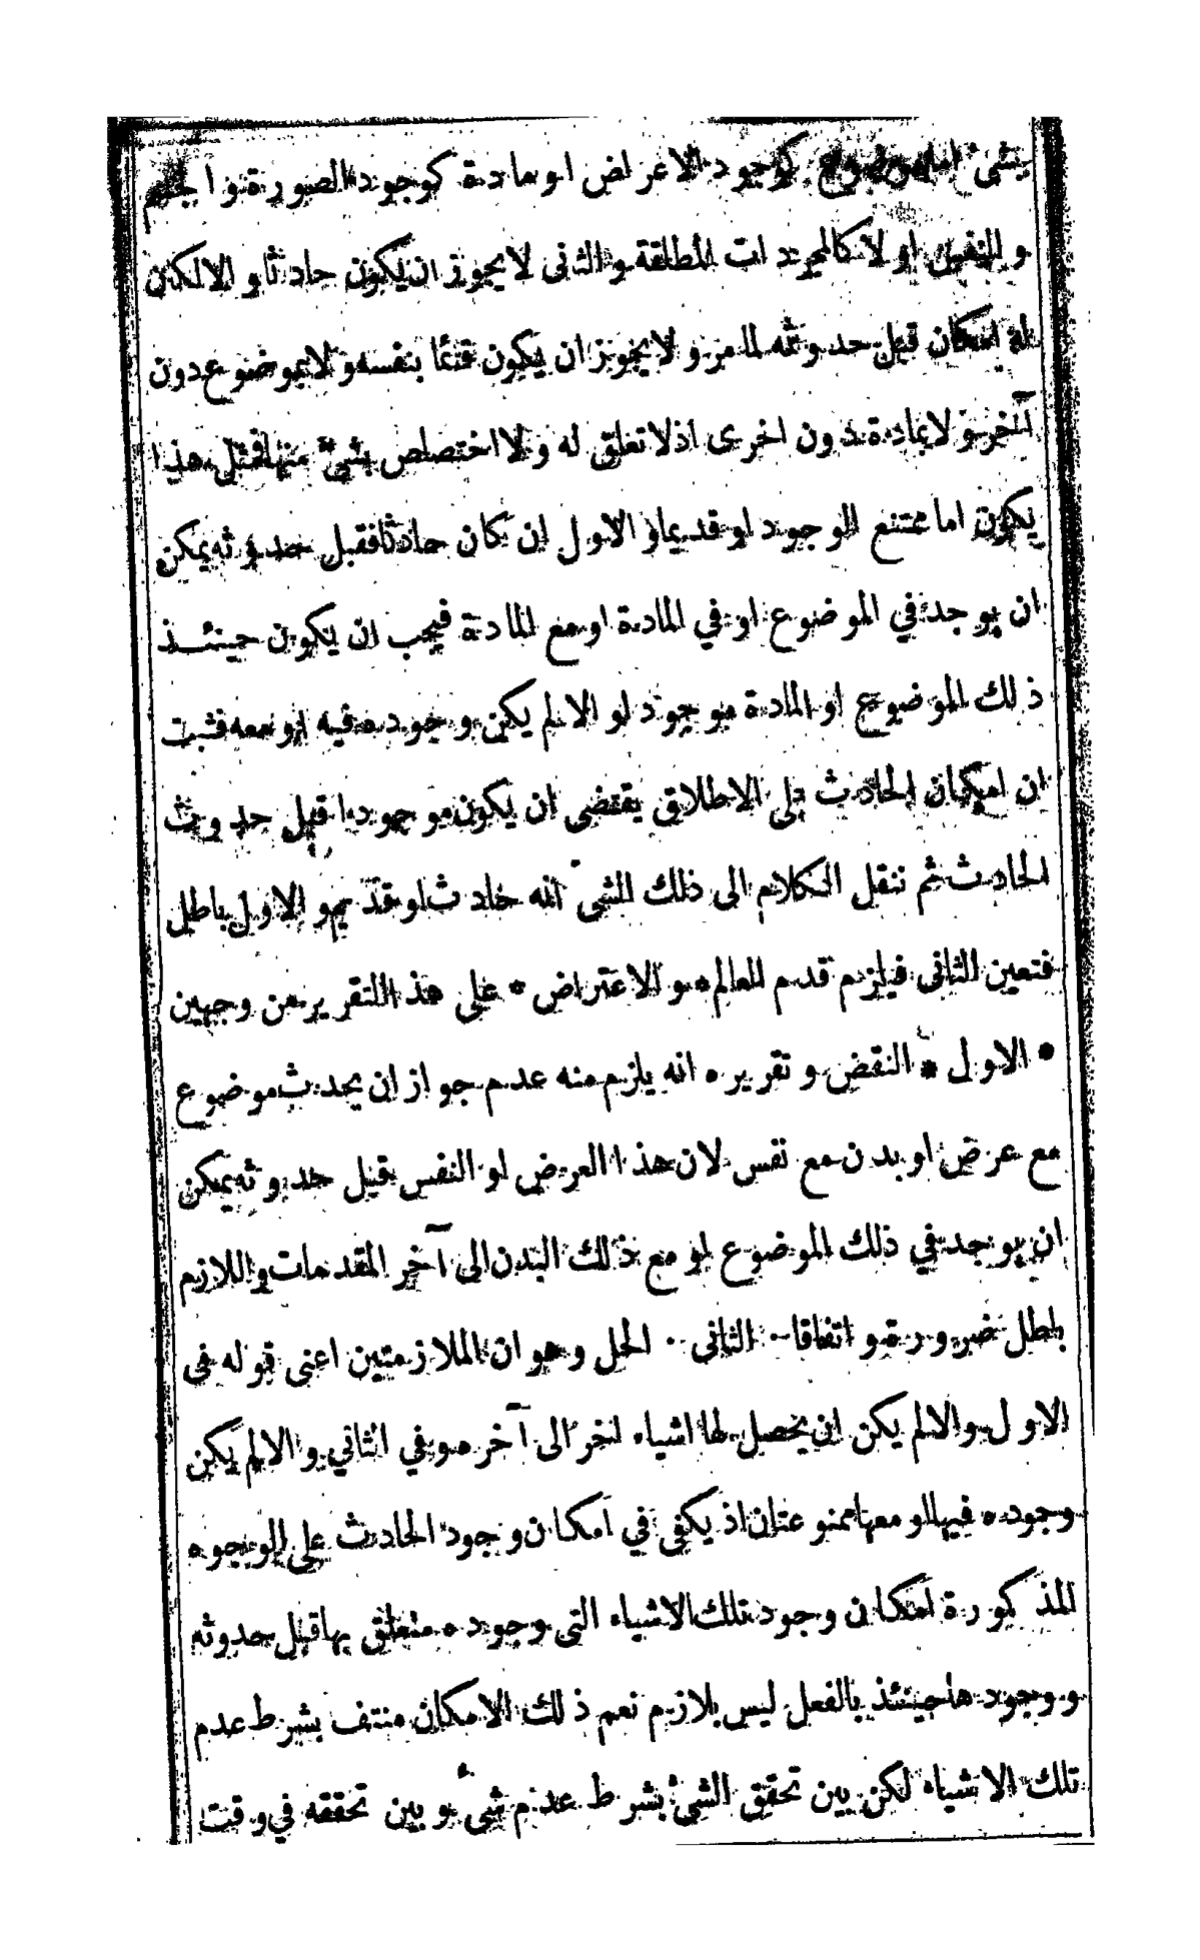 بشئ اما موضوع كوجود الاعراض او مادة كوجود الصورة او الجسم
والنفس او لا كالمجردات المطلقة والثانى لا يجوز ان يكون حادثا والا لكان
له امكان قبل حدوثه لما مر ولا يجوز ان يكون قائما بنفسه ولا بموضوع دون
آخر ولا بمادة دون اخرى اذ لا تعلق له ولا اختصاص بشئ منها فمثل هذا
يكون اما ممتنع الوجود او قديما والاول ان كان حادثا فقبل حدوثه يمكن
ان يوجد في الموضوع او في المادة او مع المادة فيجب ان يكون حينئذ
ذلك الموضوع او المادة موجودا والا لم يكن وجوده فيه او معه فثبت
ان امكان الحادث على الاطلاق يقتضى ان يكون موجودا قبل حدوث
الحادث ثم ننقل الكلام الى ذلك الشئ انه حادث او قديم والاول باطل
فتعين الثانى فيلزم قدم العالم * والاعتراض * على هذا التقرير من وجهين
* الاول * النقض وتقريره انه يلزم منه عدم جواز ان يحدث موضوع
مع عرض او بدن مع نفس لان هذا العرض او النفس قبل حدوثه يمكن
ان يوجد في ذلك الموضوع او مع ذلك البدن الى آخر المقدمات واللازم
باطل ضرورة واتفاقا · الثانى · الحل وهو ان الملازمتين اعنى قوله فى
الاول والا لم يكن ان يحصل لها اشياء اخر الى آخره وفي الثاني والا لم يكن
وجوده فيها او معها ممنوعتان اذ يكفى في امكان وجود الحادث على الوجوه
المذكورة امكان وجود تلك الاشياء التى وجوده متعلق بها قبل حدوثه
ووجودها حينئذ بالفعل ليس بلازم نعم ذلك الامكان منتف بشرط عدم
تلك الاشياء لكن بين تحقق الشئ بشرط عدم شئ وبين تحققه في وقت